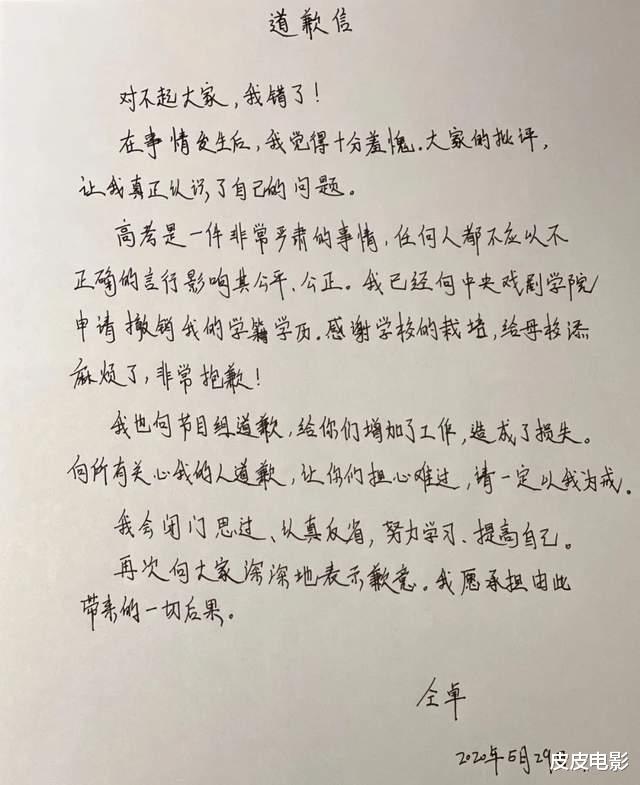 道歉信
对不起大家，我错了！
在事情发生后，我觉得十分羞愧。大家的批评，
让我真正认识了自己的问题。
高考是一件非常严肃的事情，任何人都不应以不
正确的言行影响其公平、公正。我已经向中央戏剧学院
申请撤销我的学籍学历。感谢学校的栽培，给母校添
麻烦了，非常抱歉！
我也向节目组道歉，给你们增加了工作，造成了损失。
向所有关心我的人道歉，让你们担心难过，请一定以我为戒。
我会闭门思过、认真反省，努力学习、提高自己。
再次向大家深深地表示歉意。我愿承担由此
带来的一切后果。
仝卓
2020年5月29
皮皮电影